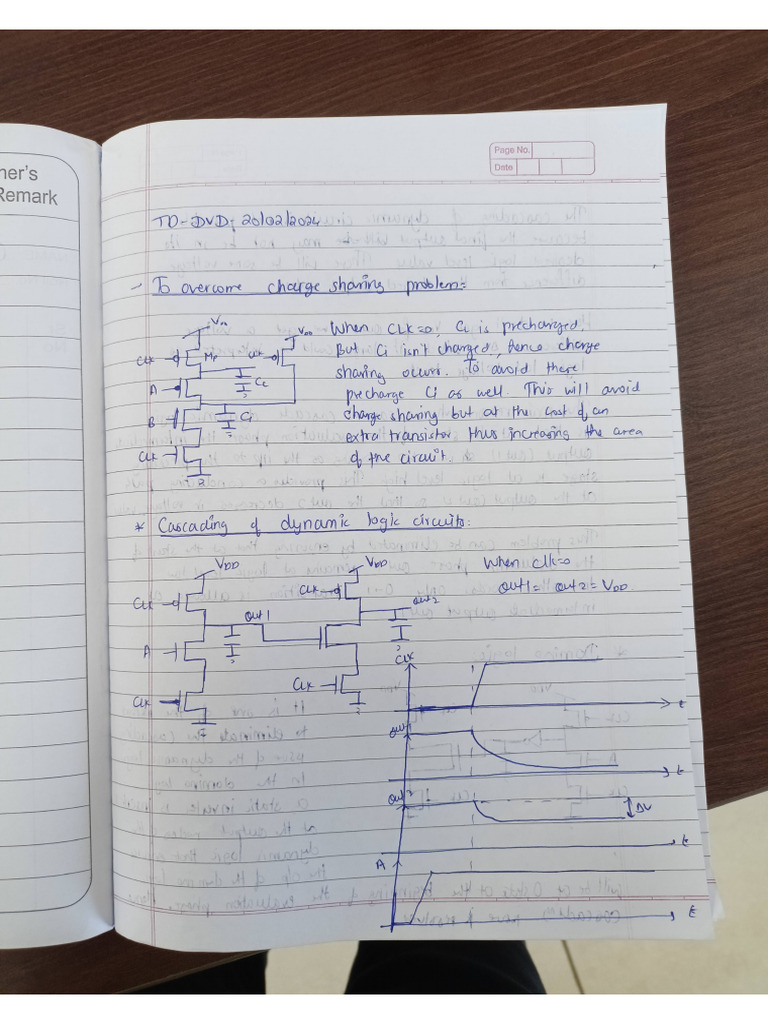 ner's
Remark
Page No.
Date
TO-DVD: 20/02/2024
- To overcome charge sharing problem:
VDD
VDD
CLK
Mp
CLK
CL
A
B
Ci
CLK
When CLK=0, CL is precharged.
But Ci isn't charged, hence charge
sharing occurs. To avoid there
precharge Ci as well. This will avoid
charge sharing but at the cost of an
extra transistor thus increasing the area
of the circuit.
* Cascading of dynamic logic circuits:
VDD
VDD
When clk=0
out1 = out2 = VDD
CLK
CLK
out1
out2
A
CLK
CLK
CLK
t
out1
t
out2
ΔV
t
A
t